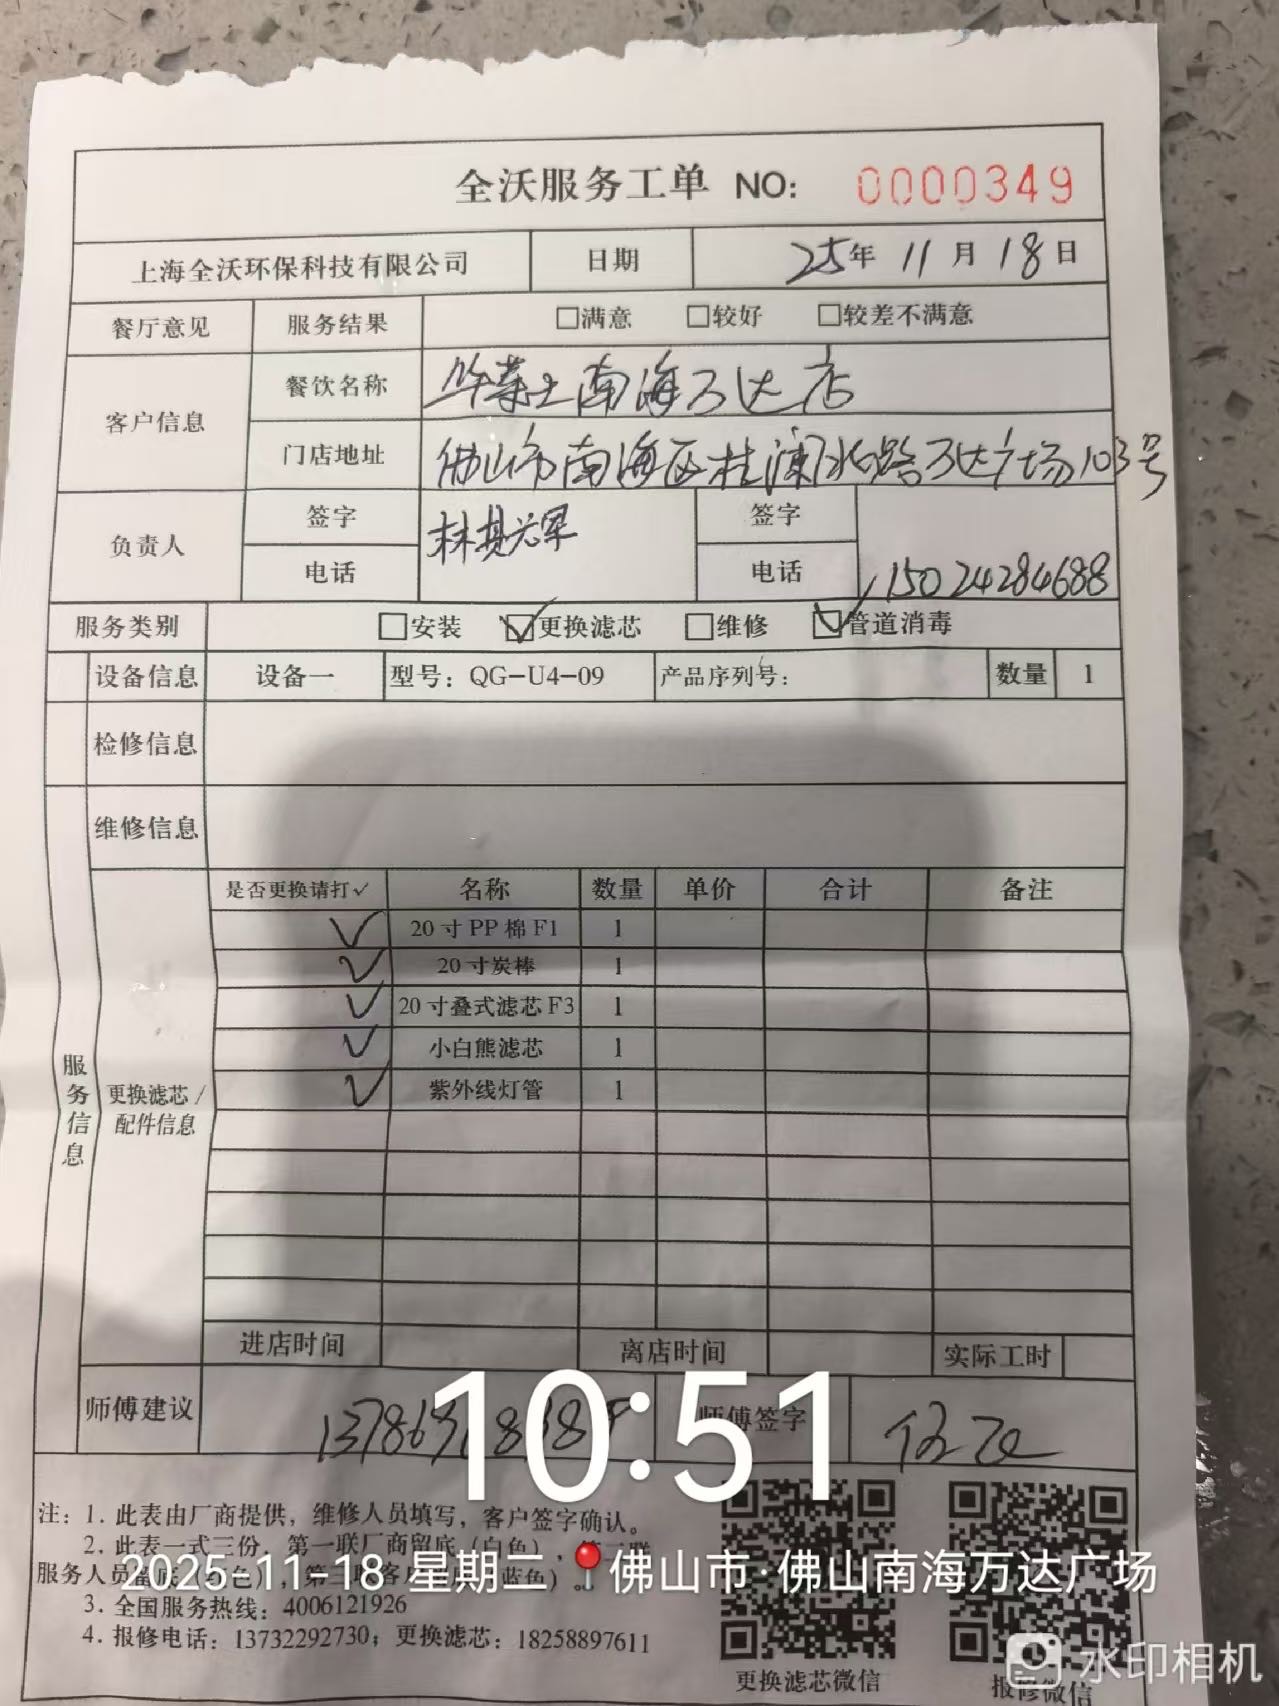 全沃服务工单 NO: 0000349
上海全沃环保科技有限公司 日期 25年 11月 18日
餐厅意见 服务结果 □满意 □较好 □较差不满意
客户信息 餐饮名称 华莱士南海万达店
门店地址 佛山市南海区桂澜北路万达广场103号
负责人 签字 签字
电话 电话 15024284688
服务类别 □安装 ☑更换滤芯 □维修 ☑管道消毒
设备信息 设备一 型号: QG-U4-09 产品序列号: 数量 1
检修信息
维修信息
服务信息
更换滤芯/配件信息
是否更换请打✓ 名称 数量 单价 合计 备注
✓ 20寸PP棉F1 1
✓ 20寸炭棒 1
✓ 20寸叠式滤芯F3 1
✓ 小白熊滤芯 1
✓ 紫外线灯管 1
进店时间 离店时间 实际工时
师傅建议 师傅签字
10:51
注: 1. 此表由厂商提供, 维修人员填写, 客户签字确认。
2. 此表一式三份, 第一联厂商留底(白色),
服务人员
2025-11-18 星期二 佛山市·佛山南海万达广场
3. 全国服务热线: 4006121926
4. 报修电话: 13732292730; 更换滤芯: 18258897611
更换滤芯微信 报修微信
水印相机